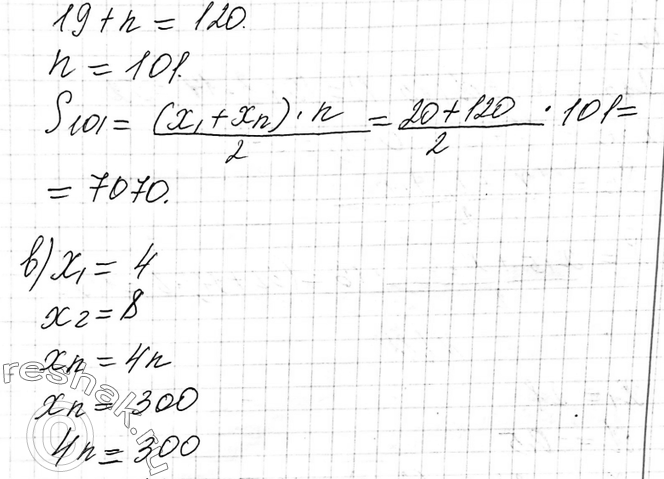 19 + n = 120.
n = 101.
S₁₀₁ = (x₁ + xₙ) · n / 2 = 20 + 120 / 2 · 101 =
= 7070.
в) x₁ = 4
x₂ = 8
xₙ = 4n
xₙ = 300
4n = 300
reshak.ru